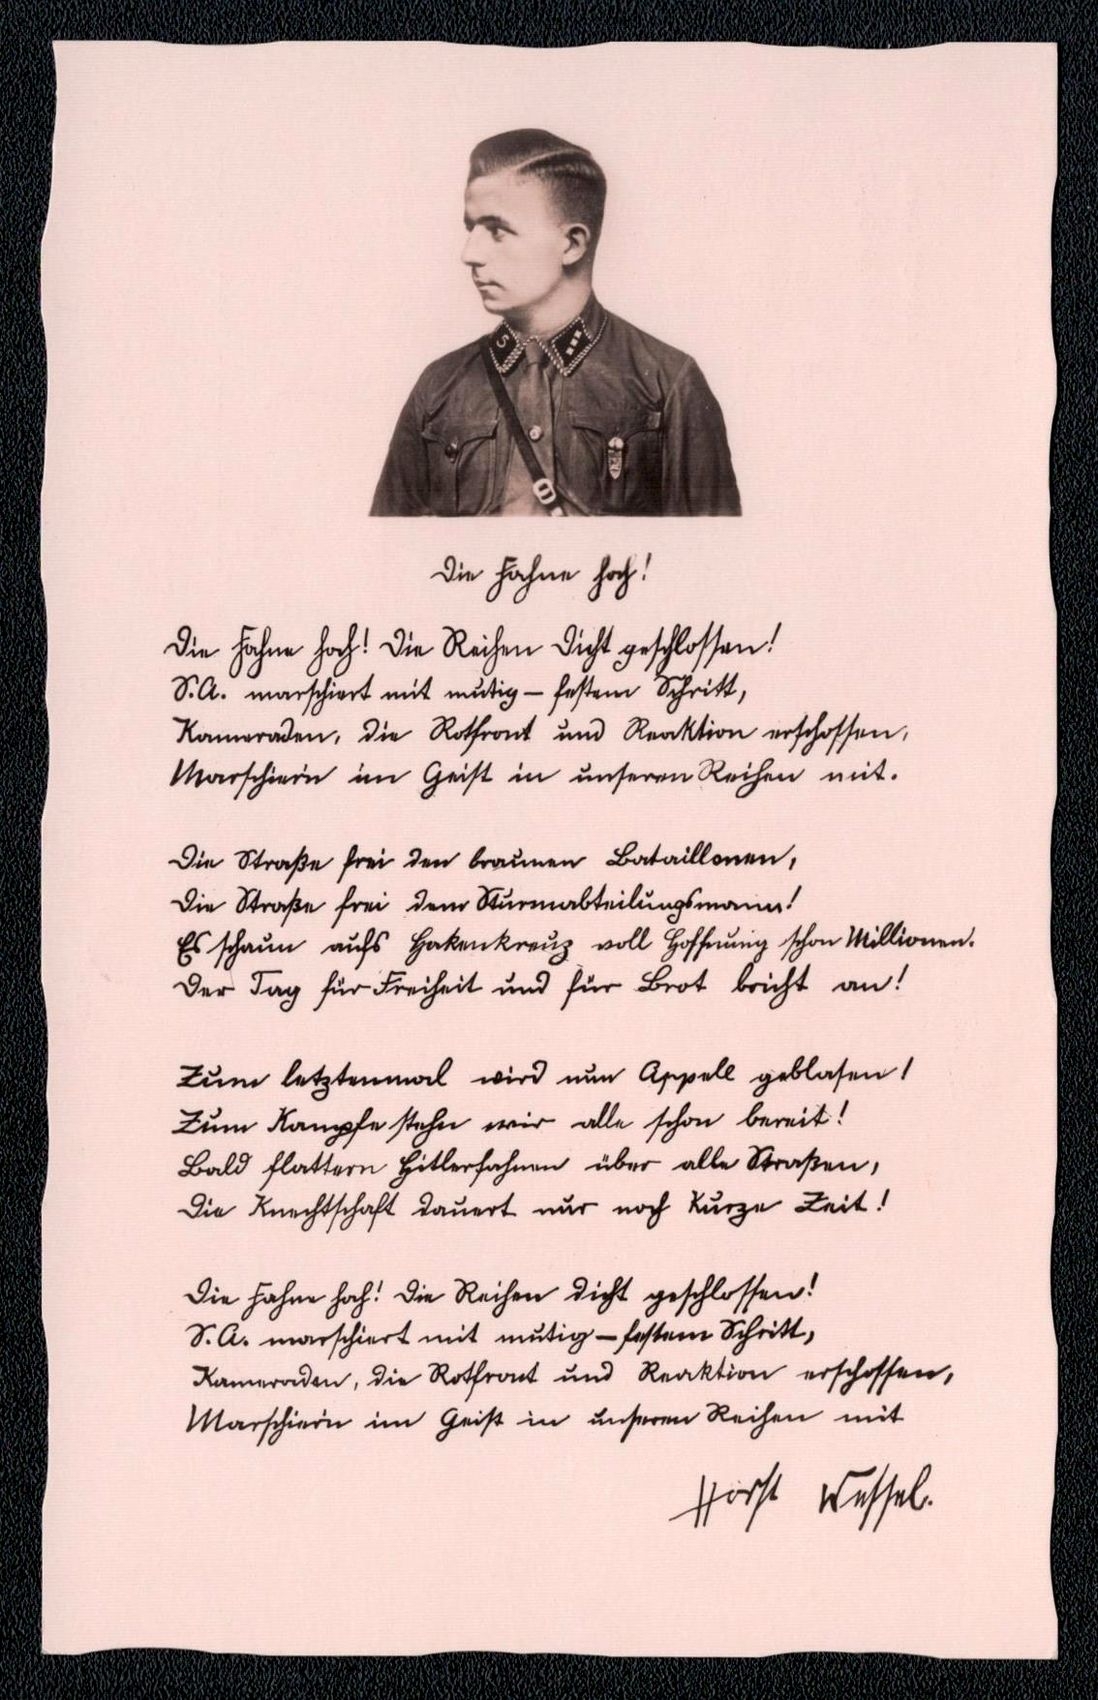 5
Die Fahne hoch!
Die Fahne hoch! Die Reihen dicht geschlossen!
S.A. marschiert mit mutig – festem Schritt,
Kameraden, die Rotfront und Reaktion erschossen,
Marschier'n im Geist in unseren Reihen mit.
Die Straße frei den braunen Bataillonen,
Die Straße frei dem Sturmabteilungsmann!
Es schaun aufs Hakenkreuz voll Hoffnung schon Millionen.
Der Tag für Freiheit und für Brot bricht an!
Zum letztenmal wird nun Appell geblasen!
Zum Kampfe stehn wir alle schon bereit!
Bald flattern Hitlerfahnen über alle Straßen,
Die Knechtschaft dauert nur noch kurze Zeit!
Die Fahne hoch! Die Reihen dicht geschlossen!
S.A. marschiert mit mutig – festem Schritt,
Kameraden, die Rotfront und Reaktion erschossen,
Marschier'n im Geist in unseren Reihen mit
Horst Wessel.